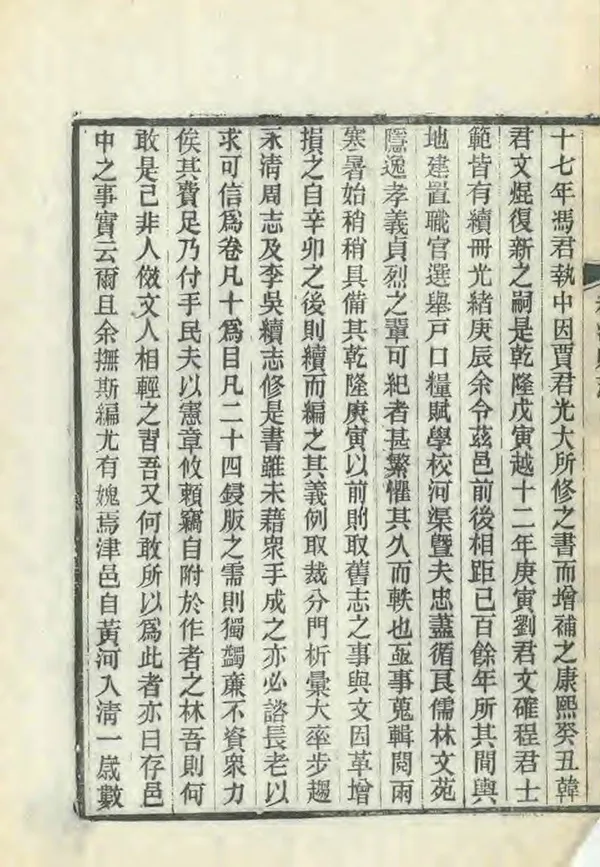 十七年馮君執中因賈君光大所修之書而增補之康熙癸丑韓
君文焜復新之嗣是乾隆戊寅越十二年庚寅劉君文確程君士
範皆有續冊光緒庚辰余令茲邑前後相距已百餘年所其間輿
地建置職官選舉戶口糧賦學校河渠暨夫忠藎循良儒林文苑
隱逸孝義貞烈之輩可紀者甚繁懼其久而軼也亟事蒐輯閱兩
寒暑始稍稍具備其乾隆庚寅以前則取舊志之事與文因革增
損之自辛卯之後則續而編之其義例取裁分門析彙大率步趨
永清周志及李吳續志修是書雖未藉眾手成之亦必諮長老以
求可信爲卷凡十爲目凡二十四鋟版之需則獨蠲廉不資眾力
俟其費足乃付手民夫以憲章攸賴竊自附於作者之林吾則何
敢是己非人傚文人相輕之習吾又何敢所以爲此者亦曰存邑
中之事實云爾且余撫斯編尤有媿焉津邑自黃河入清一歲數